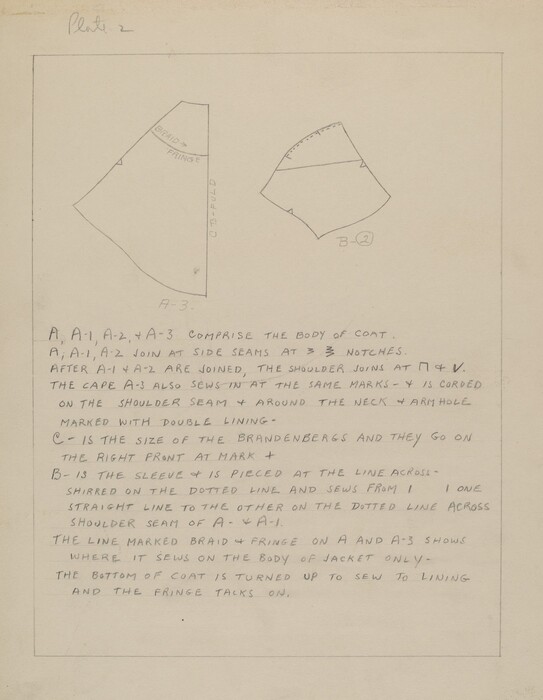 Plate 2
BRAID &
FRINGE
ON-FOLD
A-3.
B-2
A, A-1, A-2, & A-3 COMPRISE THE BODY OF COAT.
A, A-1, A-2 JOIN AT SIDE SEAMS AT NOTCHES.
AFTER A-1 & A-2 ARE JOINED, THE SHOULDER JOINS AT ⊓ & V.
THE CAPE A-3 ALSO SEWS IN AT THE SAME MARKS - & IS CORDED
ON THE SHOULDER SEAM & AROUND THE NECK & ARMHOLE
MARKED WITH DOUBLE LINING-
C- IS THE SIZE OF THE BRANDENBERGS AND THEY GO ON
THE RIGHT FRONT AT MARK +
B- IS THE SLEEVE & IS PIECED AT THE LINE ACROSS-
SHIRRED ON THE DOTTED LINE AND SEWS FROM | | ONE
STRAIGHT LINE TO THE OTHER ON THE DOTTED LINE ACROSS
SHOULDER SEAM OF A- & A-1.
THE LINE MARKED BRAID & FRINGE ON A AND A-3 SHOWS
WHERE IT SEWS ON THE BODY OF JACKET ONLY-
THE BOTTOM OF COAT IS TURNED UP TO SEW TO LINING
AND THE FRINGE TALKS ON.